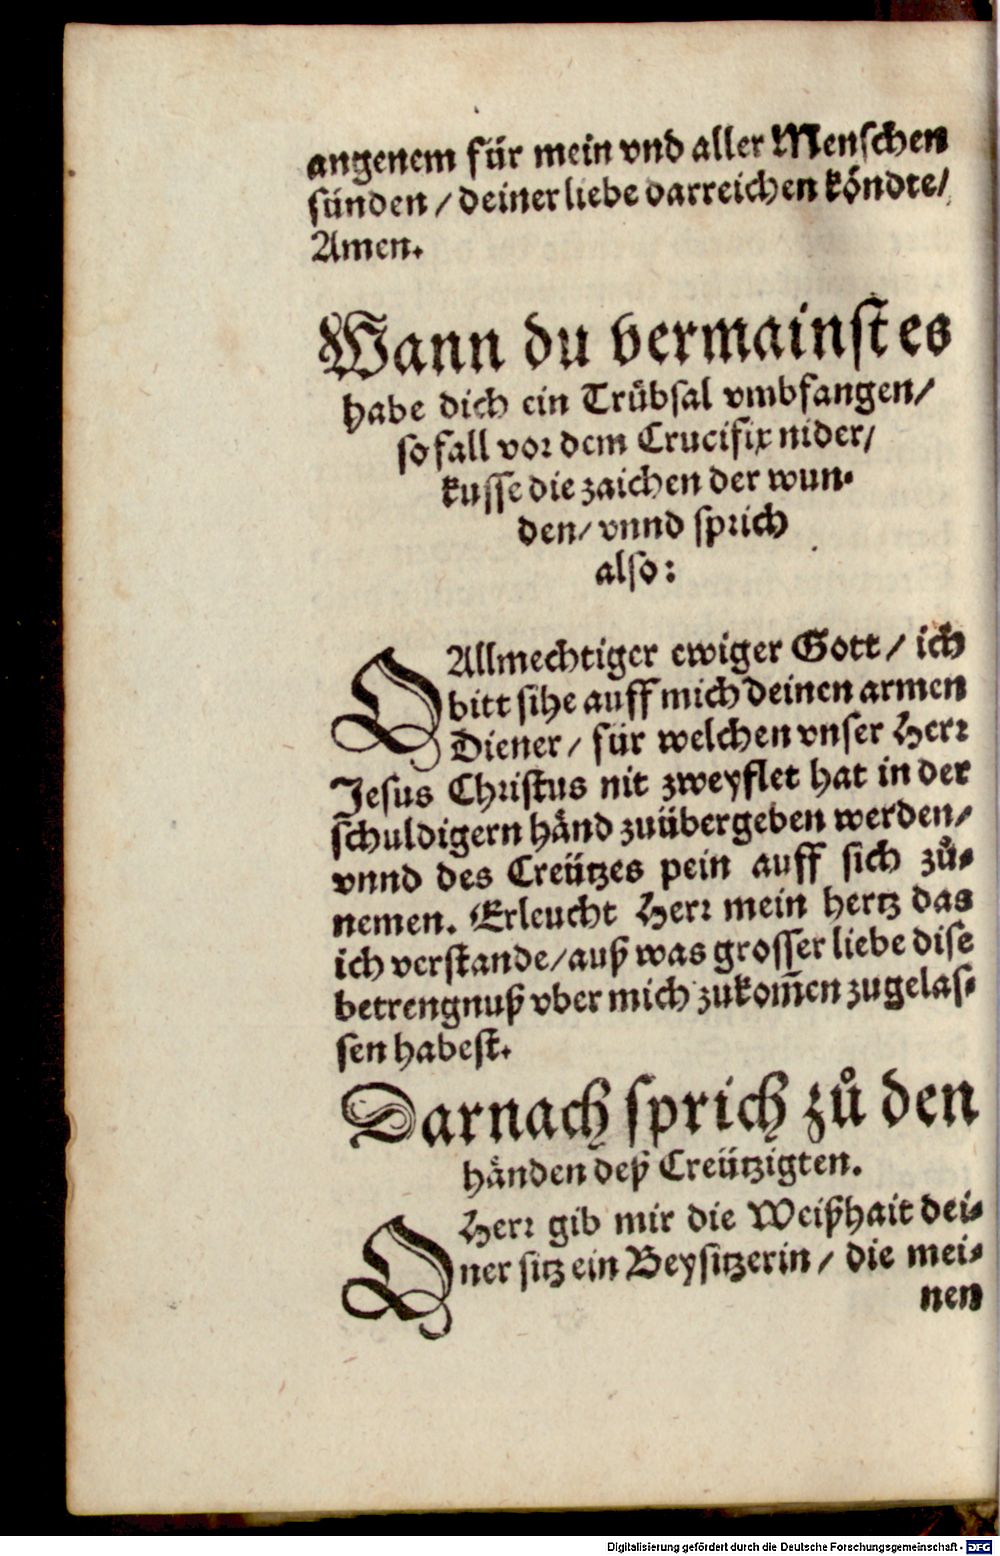 angenem für mein vnd aller Menschen
sünden / deiner liebe darreichen köndte /
Amen.
Wann du vermainst es
habe dich ein Trübsal vmbfangen /
so fall vor dem Crucifix nider /
kusse die zaichen der wun-
den / vnnd sprich
also:
O Allmechtiger ewiger Gott / ich
bitt sihe auff mich deinen armen
Diener / für welchen vnser Herr
Jesus Christus nit zweyflet hat in der
schuldigern händ zuübergeben werden /
vnnd des Creützes pein auff sich zů-
nemen. Erleucht Herr mein hertz das
ich verstande / auß was grosser liebe dise
betrengnuß vber mich zukom̄en zugelas-
sen habest.
Darnach sprich zů den
händen deß Creützigten.
O Herr gib mir die Weißhait dei-
ner sitz ein Beysitzerin / die mei-
nen
Digitalisierung gefördert durch die Deutsche Forschungsgemeinschaft - DFG